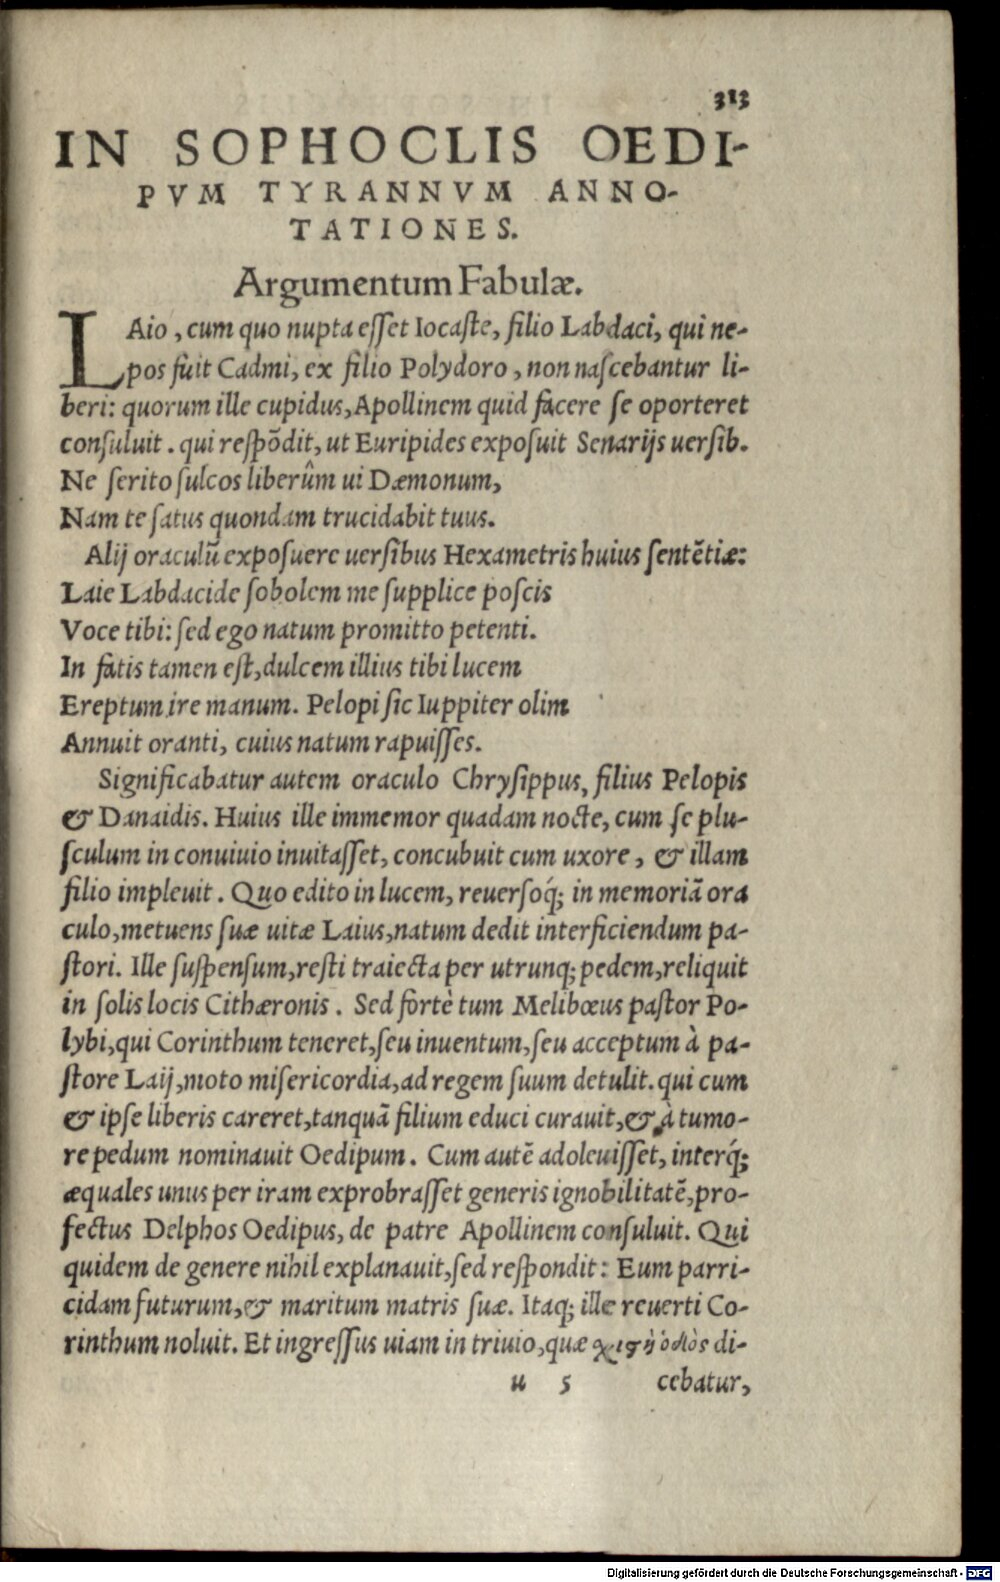 313
IN SOPHOCLIS OEDI-
PVM TYRANNVM ANNO-
TATIONES.
Argumentum Fabulæ.
LAio, cum quo nupta eſſet Iocaſte, filio Labdaci, qui ne-
pos fuit Cadmi, ex filio Polydoro, non naſcebantur li-
beri: quorum ille cupidus, Apollinem quid facere ſe oporteret
conſuluit. qui reſpōdit, ut Euripides expoſuit Senarijs uerſib.
Ne ſerito ſulcos liberûm ui Dæmonum,
Nam te ſatus quondam trucidabit tuus.
Alij oraculū expoſuere uerſibus Hexametris huius ſentētiæ:
Laie Labdacide ſobolem me ſupplice poſcis
Voce tibi: ſed ego natum promitto petenti.
In fatis tamen eſt, dulcem illius tibi lucem
Ereptum ire manum. Pelopi ſic Iuppiter olim
Annuit oranti, cuius natum rapuiſſes.
Significabatur autem oraculo Chryſippus, filius Pelopis
& Danaidis. Huius ille immemor quadam nocte, cum ſe plu-
ſculum in conuiuio inuitaſſet, concubuit cum uxore, & illam
filio impleuit. Quo edito in lucem, reuerſoq́; in memoriā ora
culo, metuens ſuæ uitæ Laius, natum dedit interficiendum pa-
ſtori. Ille ſuſpenſum, reſti traiecta per utrunq; pedem, reliquit
in ſolis locis Cithæronis. Sed fortè tum Melibœus paſtor Po-
lybi, qui Corinthum teneret, ſeu inuentum, ſeu acceptum à pa-
ſtore Laij, moto miſericordia, ad regem ſuum detulit. qui cum
& ipſe liberis careret, tanquā filium educi curauit, & à tumo-
re pedum nominauit Oedipum. Cum autē adoleuiſſet, interq́;
æquales unus per iram exprobraſſet generis ignobilitatē, pro-
fectus Delphos Oedipus, de patre Apollinem conſuluit. Qui
quidem de genere nihil explanauit, ſed reſpondit: Eum parri-
cidam futurum, & maritum matris ſuæ. Itaq; ille reuerti Co-
rinthum noluit. Et ingreſſus uiam in triuio, quæ χιστὴ ὁδὸς di-
u 5 cebatur,
Digitalisierung gefördert durch die Deutsche Forschungsgemeinschaft - DFG